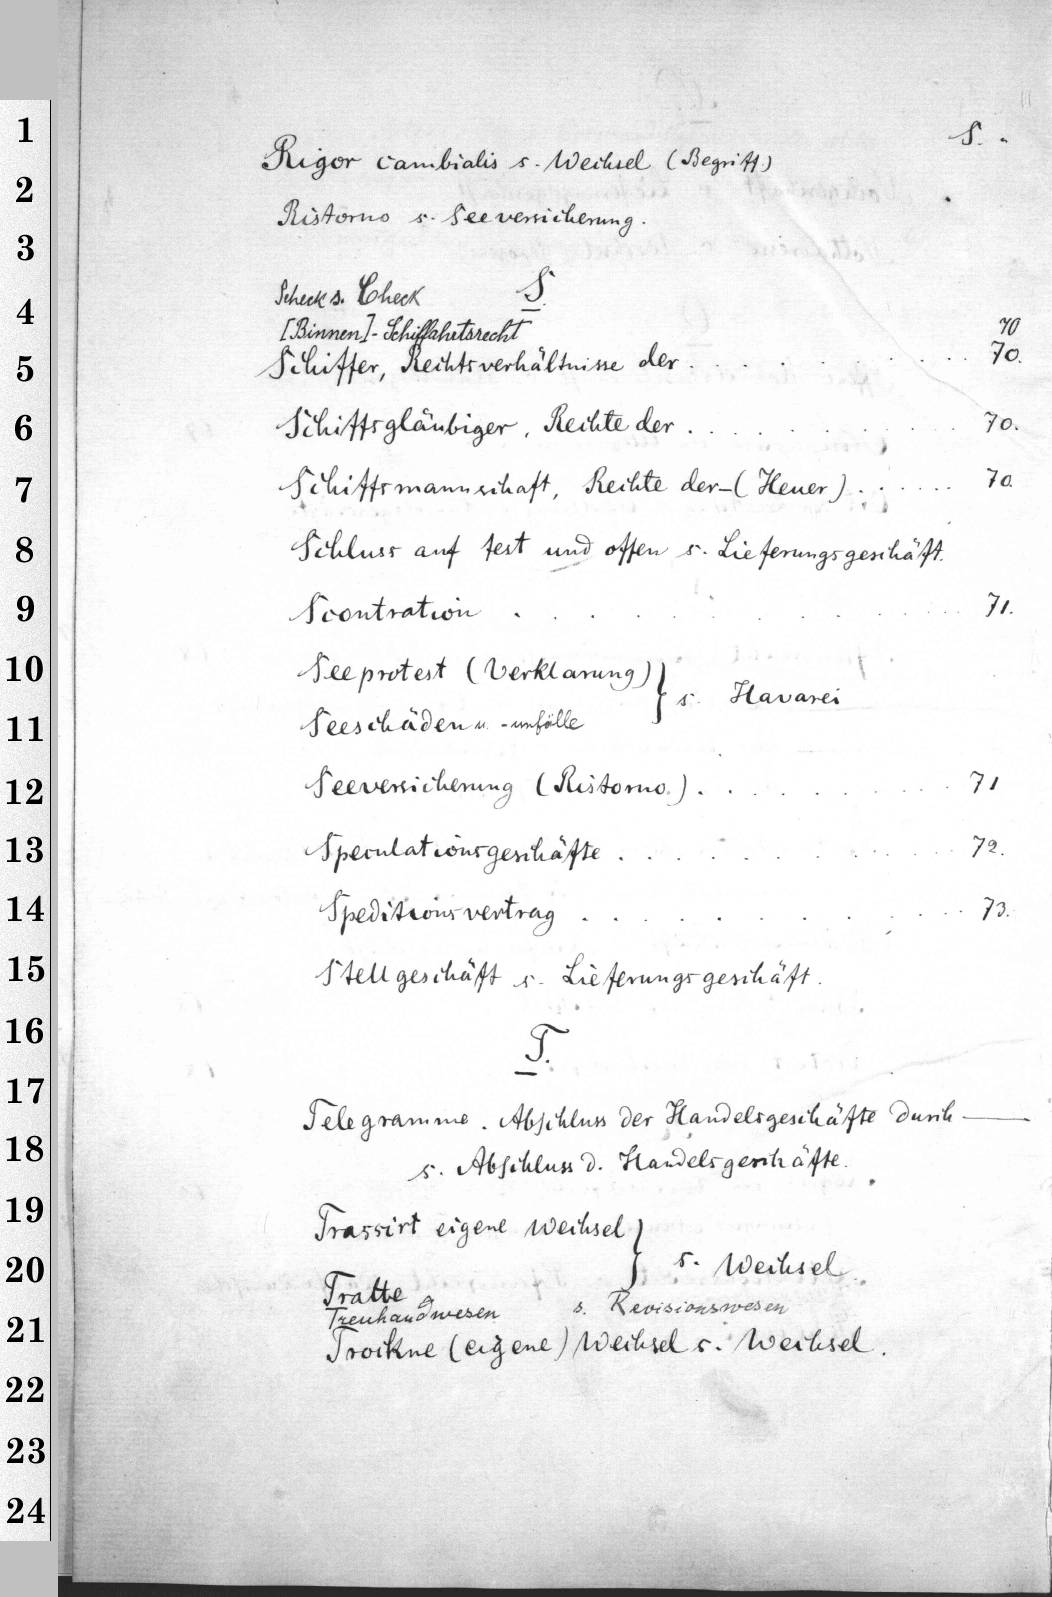 S.
Rigor cambialis s. Wechsel (Begriff.)
Ristorno s. Seeversicherung.
S.
Scheck s. Check
[Binnen]- Schiffahrtsrecht 70
Schiffer, Rechtsverhältnisse der . . . . . . . . . 70.
Schiffsgläubiger, Rechte der . . . . . . . . . . 70.
Schiffsmannschaft, Rechte der - (Heuer) . . . . . . 70.
Schluss auf fest und offen s. Lieferungsgeschäft.
Scontration . . . . . . . . . . . . 71.
Seeprotest (Verklarung) } s. Havarei
Seeschäden u. -unfälle
Seeversicherung (Ristorno.) . . . . . . . . . . 71
Speculationsgeschäfte . . . . . . . . . . . 72.
Speditionsvertrag . . . . . . . . . . . 73.
Stellgeschäft s. Lieferungsgeschäft.
T.
Telegramme. Abschluss der Handelsgeschäfte durch —
s. Abschluss d. Handelsgeschäfte.
Trassirt eigene Wechsel } s. Wechsel.
Tratte
Treuhandwesen s. Revisionswesen
Trockne (eigene) Wechsel s. Wechsel.
1
2
3
4
5
6
7
8
9
10
11
12
13
14
15
16
17
18
19
20
21
22
23
24